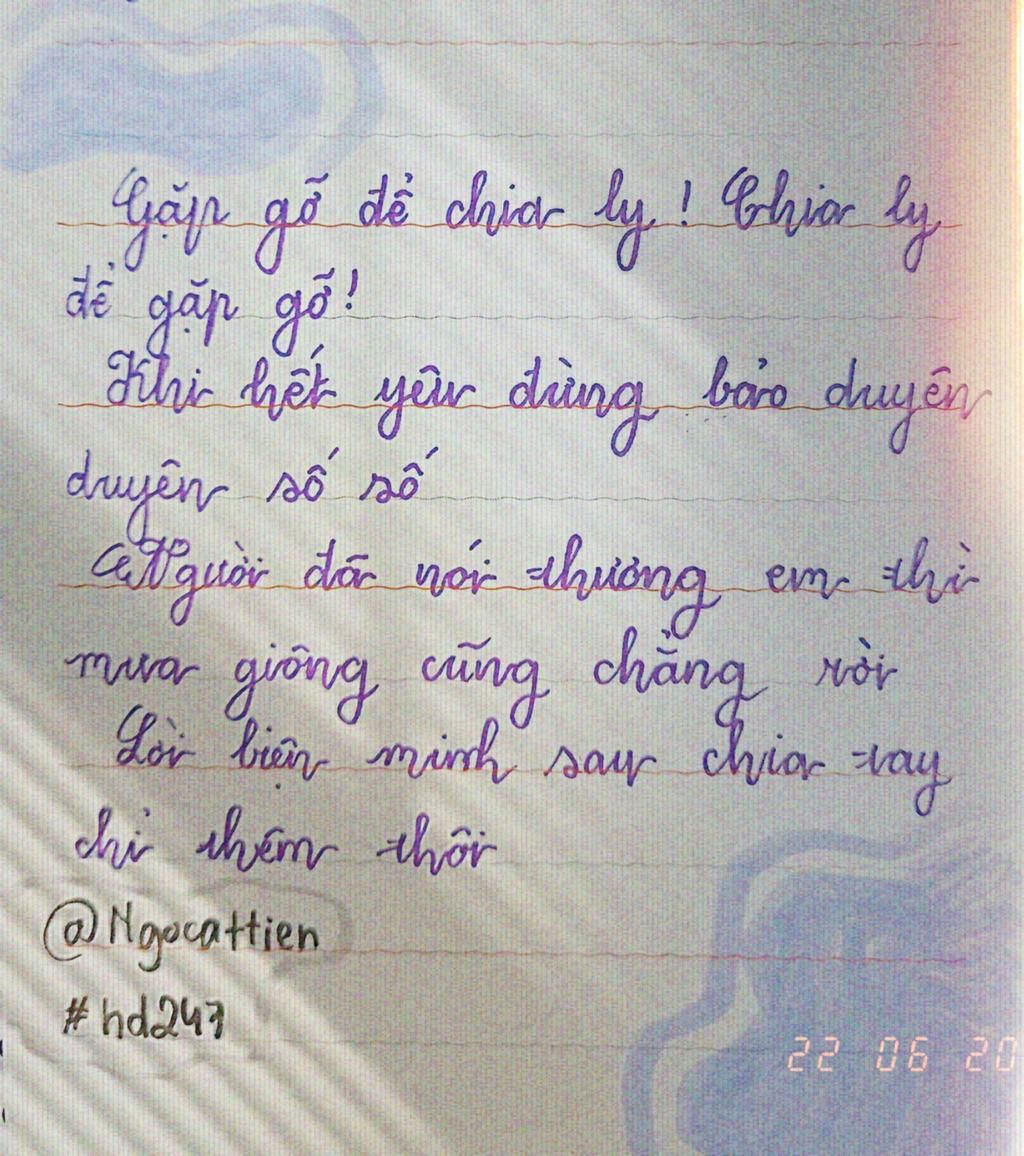 Gặp gỡ để chia ly! Chia ly
để gặp gỡ!
Khi hết yêu đừng bảo duyên
duyên số số
Người đã nói thương em thì
mưa giông cũng chẳng rời
Lời biện minh sau chia tay
chỉ thêm thôi
@Ngocattien
#hd247
22 06 20